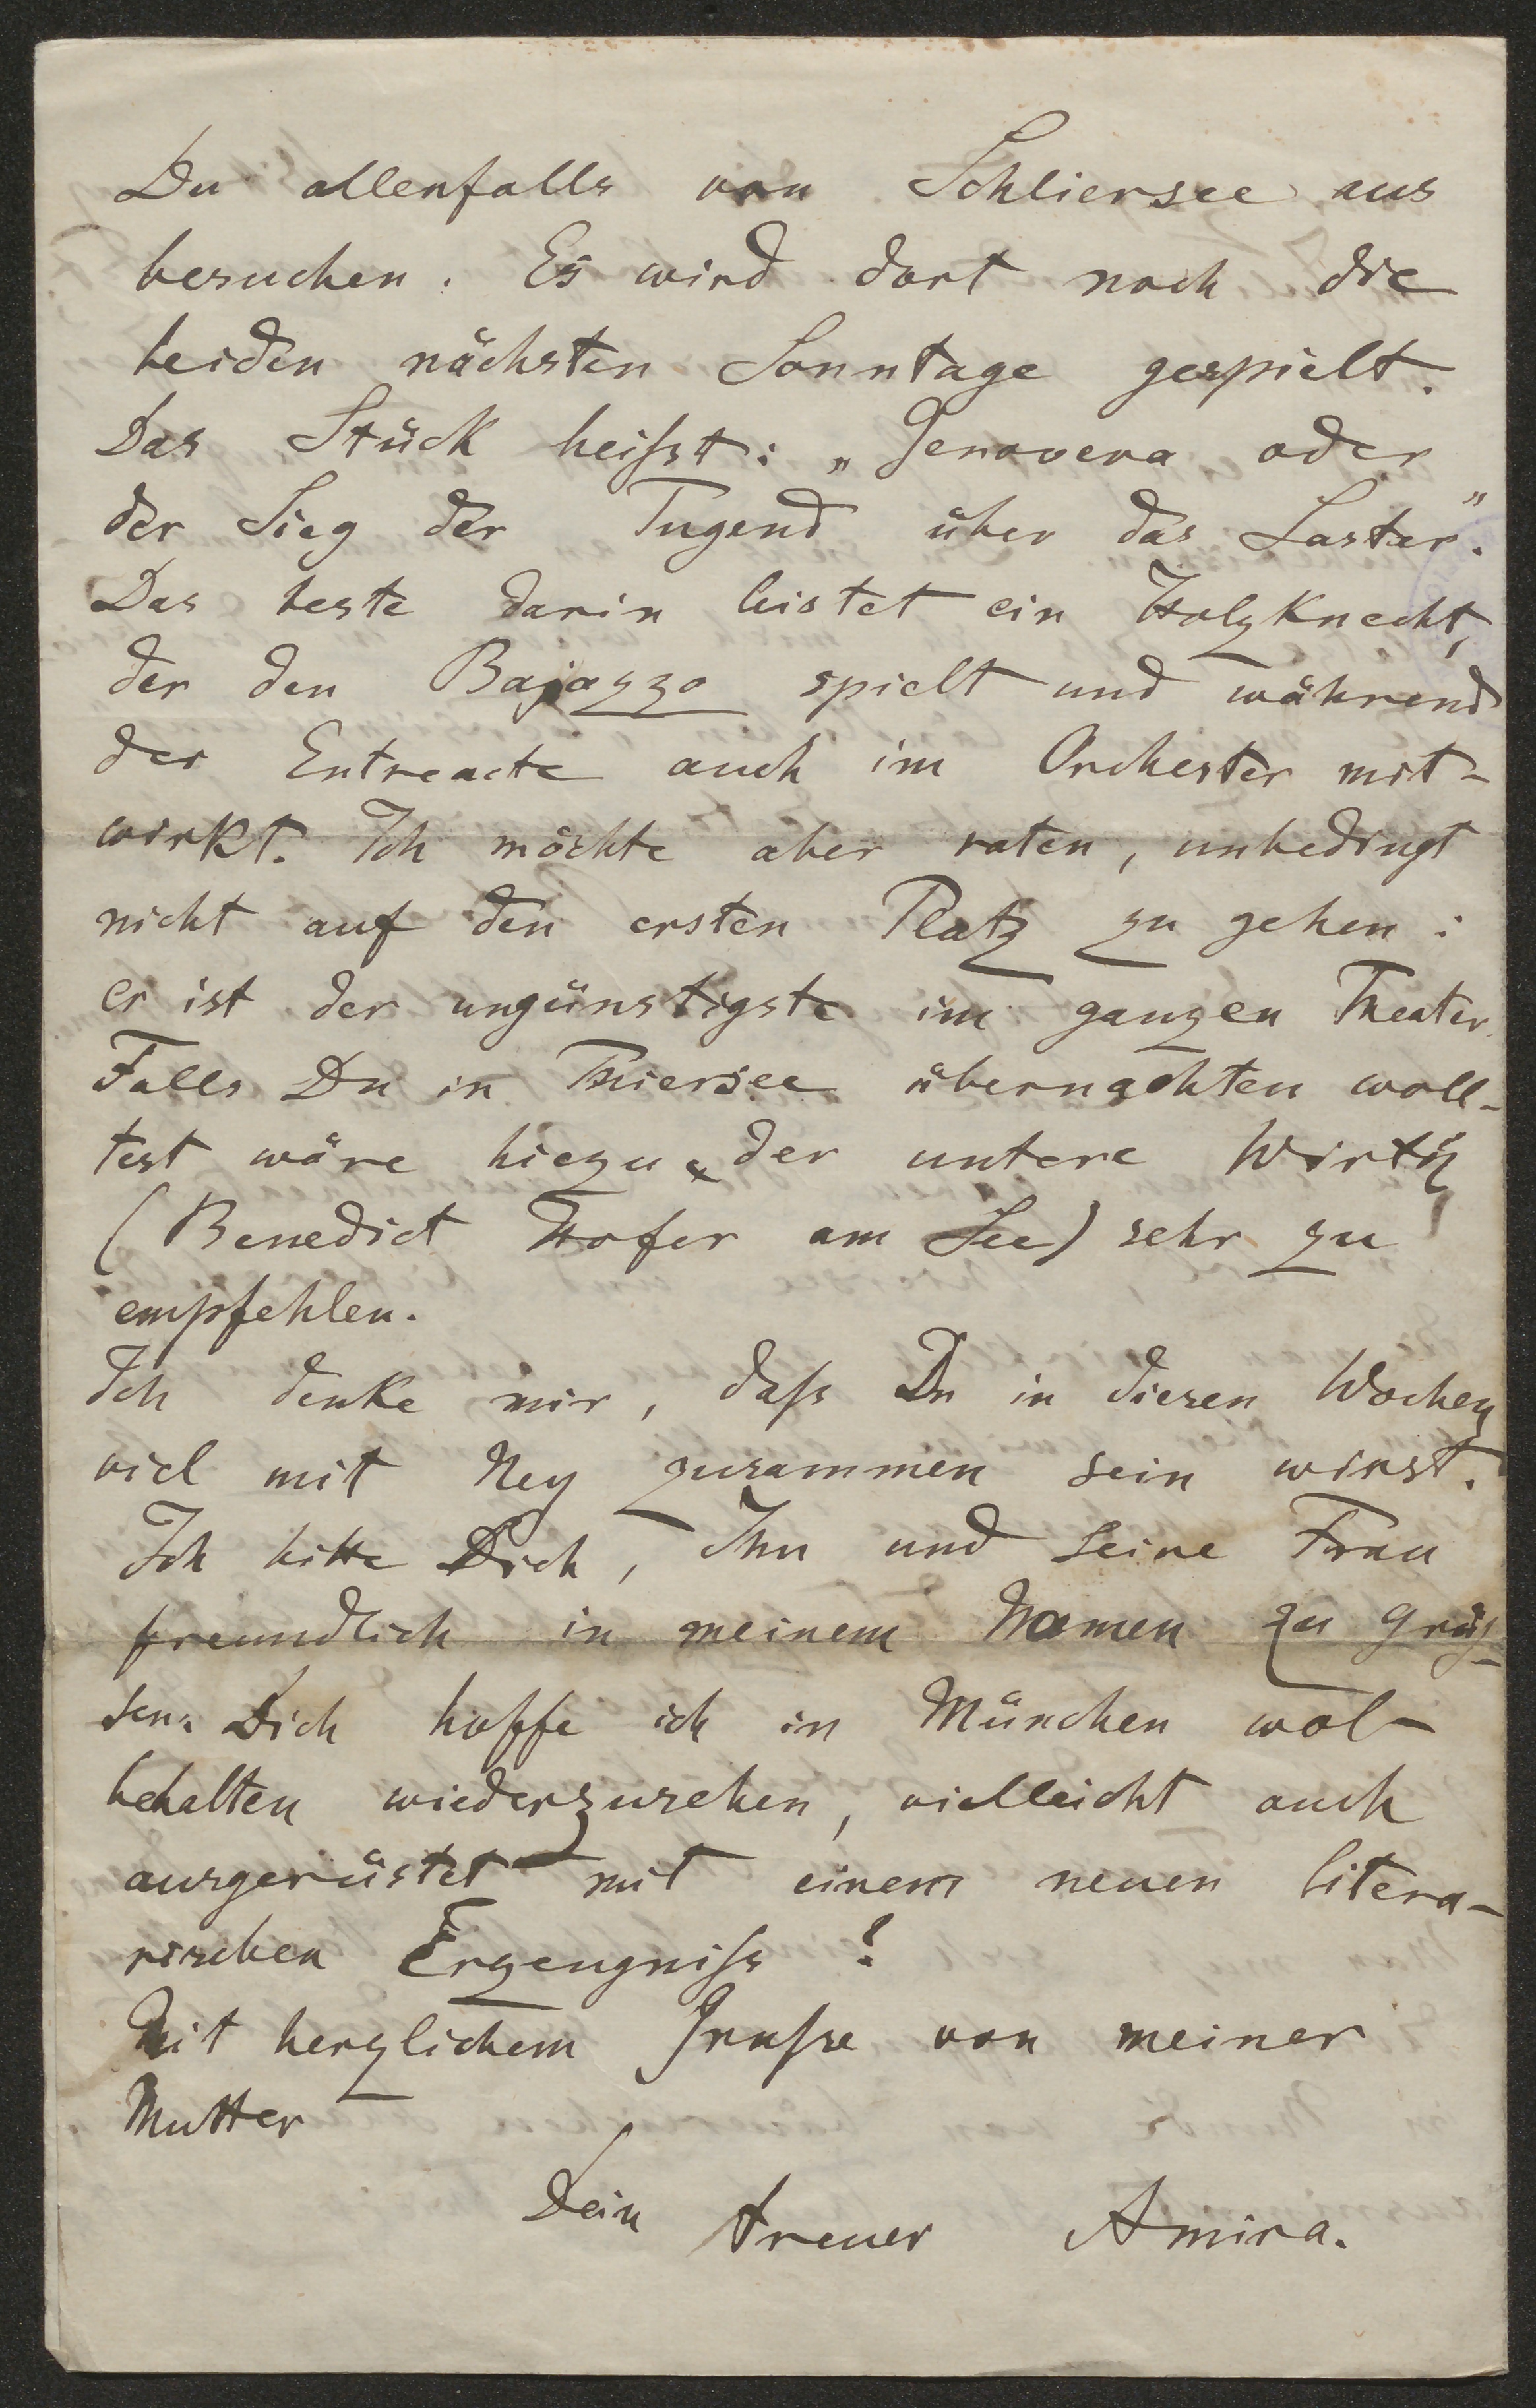 Du allenfalls von Schliersee aus
besuchen. Es wird dort noch die
beiden nächsten Sonntage gespielt.
Das Stück heißst: „Genovera oder
der Sieg der Tugend über das Laster“.
Das beste darin leistet ein Holzknecht,
der den Bajazzo spielt und während
der Entreacte auch im Orchester mit-
wirkt. Ich möchte aber raten, unbedingt
nicht auf den ersten Platz zu gehen:
er ist der ungünstigste im ganzen Theater.
Falls Du in Thiersee übernachten woll-
test wäre hiezu der untere Wirth
(Benedict Hofer am See) sehr zu
empfehlen.
Ich denke mir, daß Du in diesen Wochen
viel mit Ney zusammen sein wirst.
Ich bitte Dich, Ihn und seine Frau
freundlich in meinem Namen zu grüs-
sen. Dich hoffe ich in München wol-
behalten wiederzusehen, vielleicht auch
ausgerüstet mit einem neuen litera-
rischen Erzeugniß?
Mit herzlichem Gruße von meiner
Mutter
Dein treuer Amira.